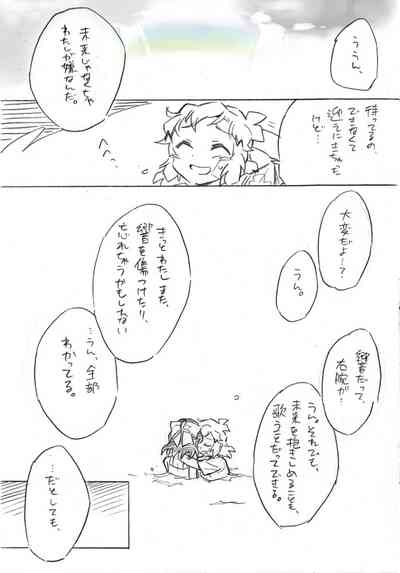 ううん、
未来じゃなくちゃ
わたしが嫌なんだ。
待ってるの、
できなくて
迎えにきちゃった
けど…
大変だよ〜?
うん。
響だって、
右腕が…
うん。それでも、
未来を抱きしめることも、
歌うことだってできる。
きっとわたし、また、
響を傷つけたり、
忘れちゃうかもしれない
…うん、全部
わかってる。
…だとしても、